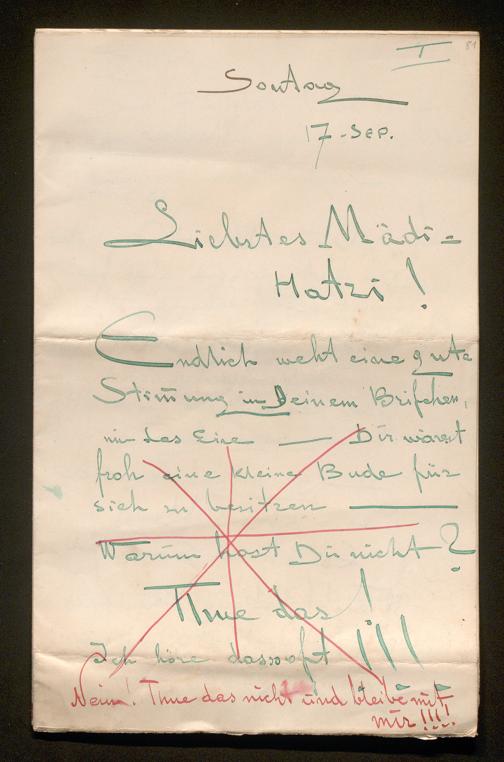 I 81
Sontag
17-Sep.
Liebstes Mädi-
Hatzi!
Endlich weht eine gute
Stim̄ung in Deinem Brifchen,
nur das Eine — Du wärest
froh eine kleine Bude für
sich zu besitzen —
Warum hast Du nicht?
Thue das!
Ich höre dassoft!!!
Nein! Thue das nicht und bleibe mit
mir!!!!